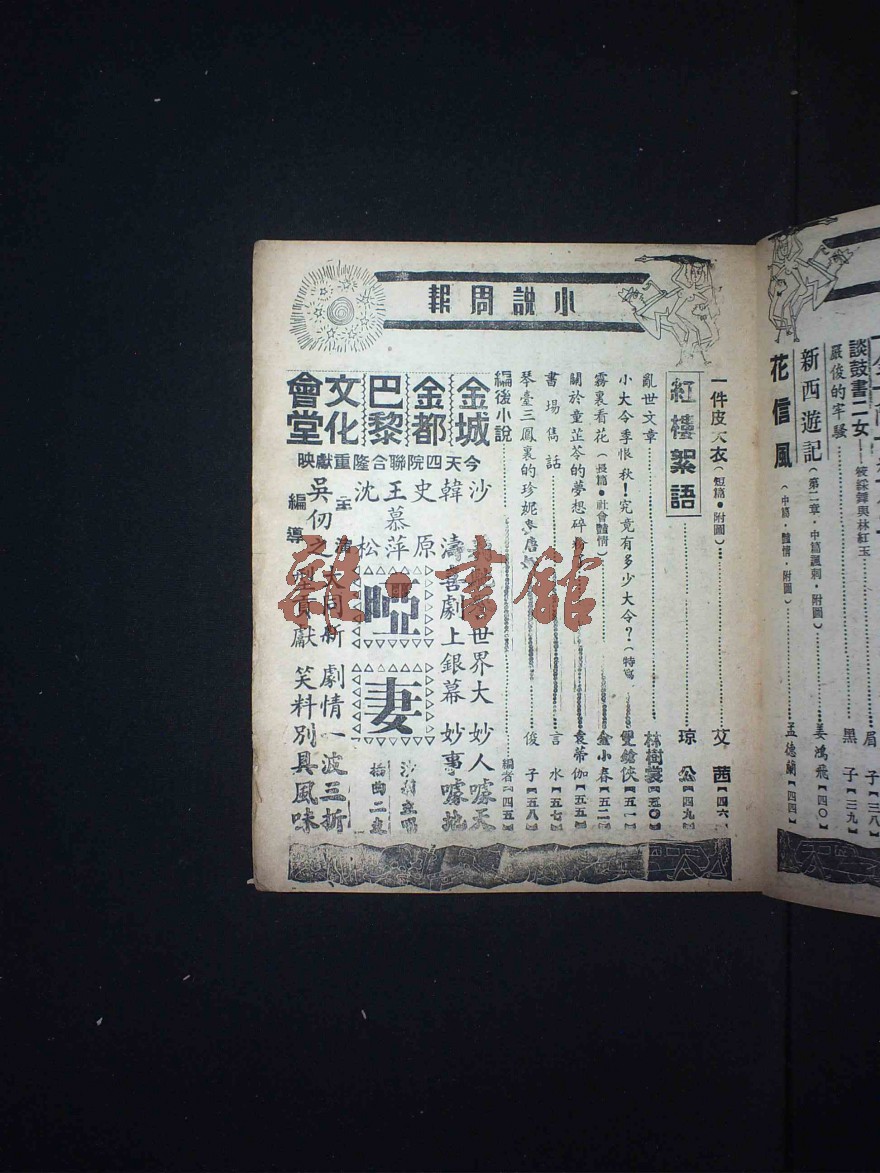 小說周報
一件皮大衣(短篇•附圖)…艾茜【四六】
紅樓絮語…琼公【四九】
亂世文章…林樹裳【五〇】
小大令季恨秋！究竟有多少大令？(特寫)…雙鎗俠【五一】
霧裏看花(長篇•社會豔情)…金小春【五二】
關於童芷苓的夢想碎…袁蒂伽【五五】
書場雋話…言水【五七】
琴臺三鳳裏的珍妮…俊子【五八】
編後小說…編者【四五】
金城
金都
巴黎
文化會堂
今天四院聯合隆重獻映
沙
韓濤
史原
王慕萍
沈松
主演
吳仞之
編導
啞妻
世界大
妙人噱天
喜劇上銀幕
妙事噱地
大同新型貢獻
劇情一波三折
笑料別具風味
插曲二支
談鼓書二女
筱綵鐸與林紅玉…眉子【三八】
嚴俊的牢騷…黑子【三九】
新西遊記(第二章•中篇諷刺•附圖)…姜鴻飛【四〇】
花信風(中篇•豔情•附圖)…孟德蘭【四四】
雜•書館